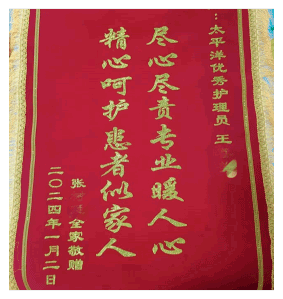 ：太平洋优秀护理员 王
尽心尽责专业暖人心
精心呵护患者似家人
张 全家敬赠
二〇二四年一月二日